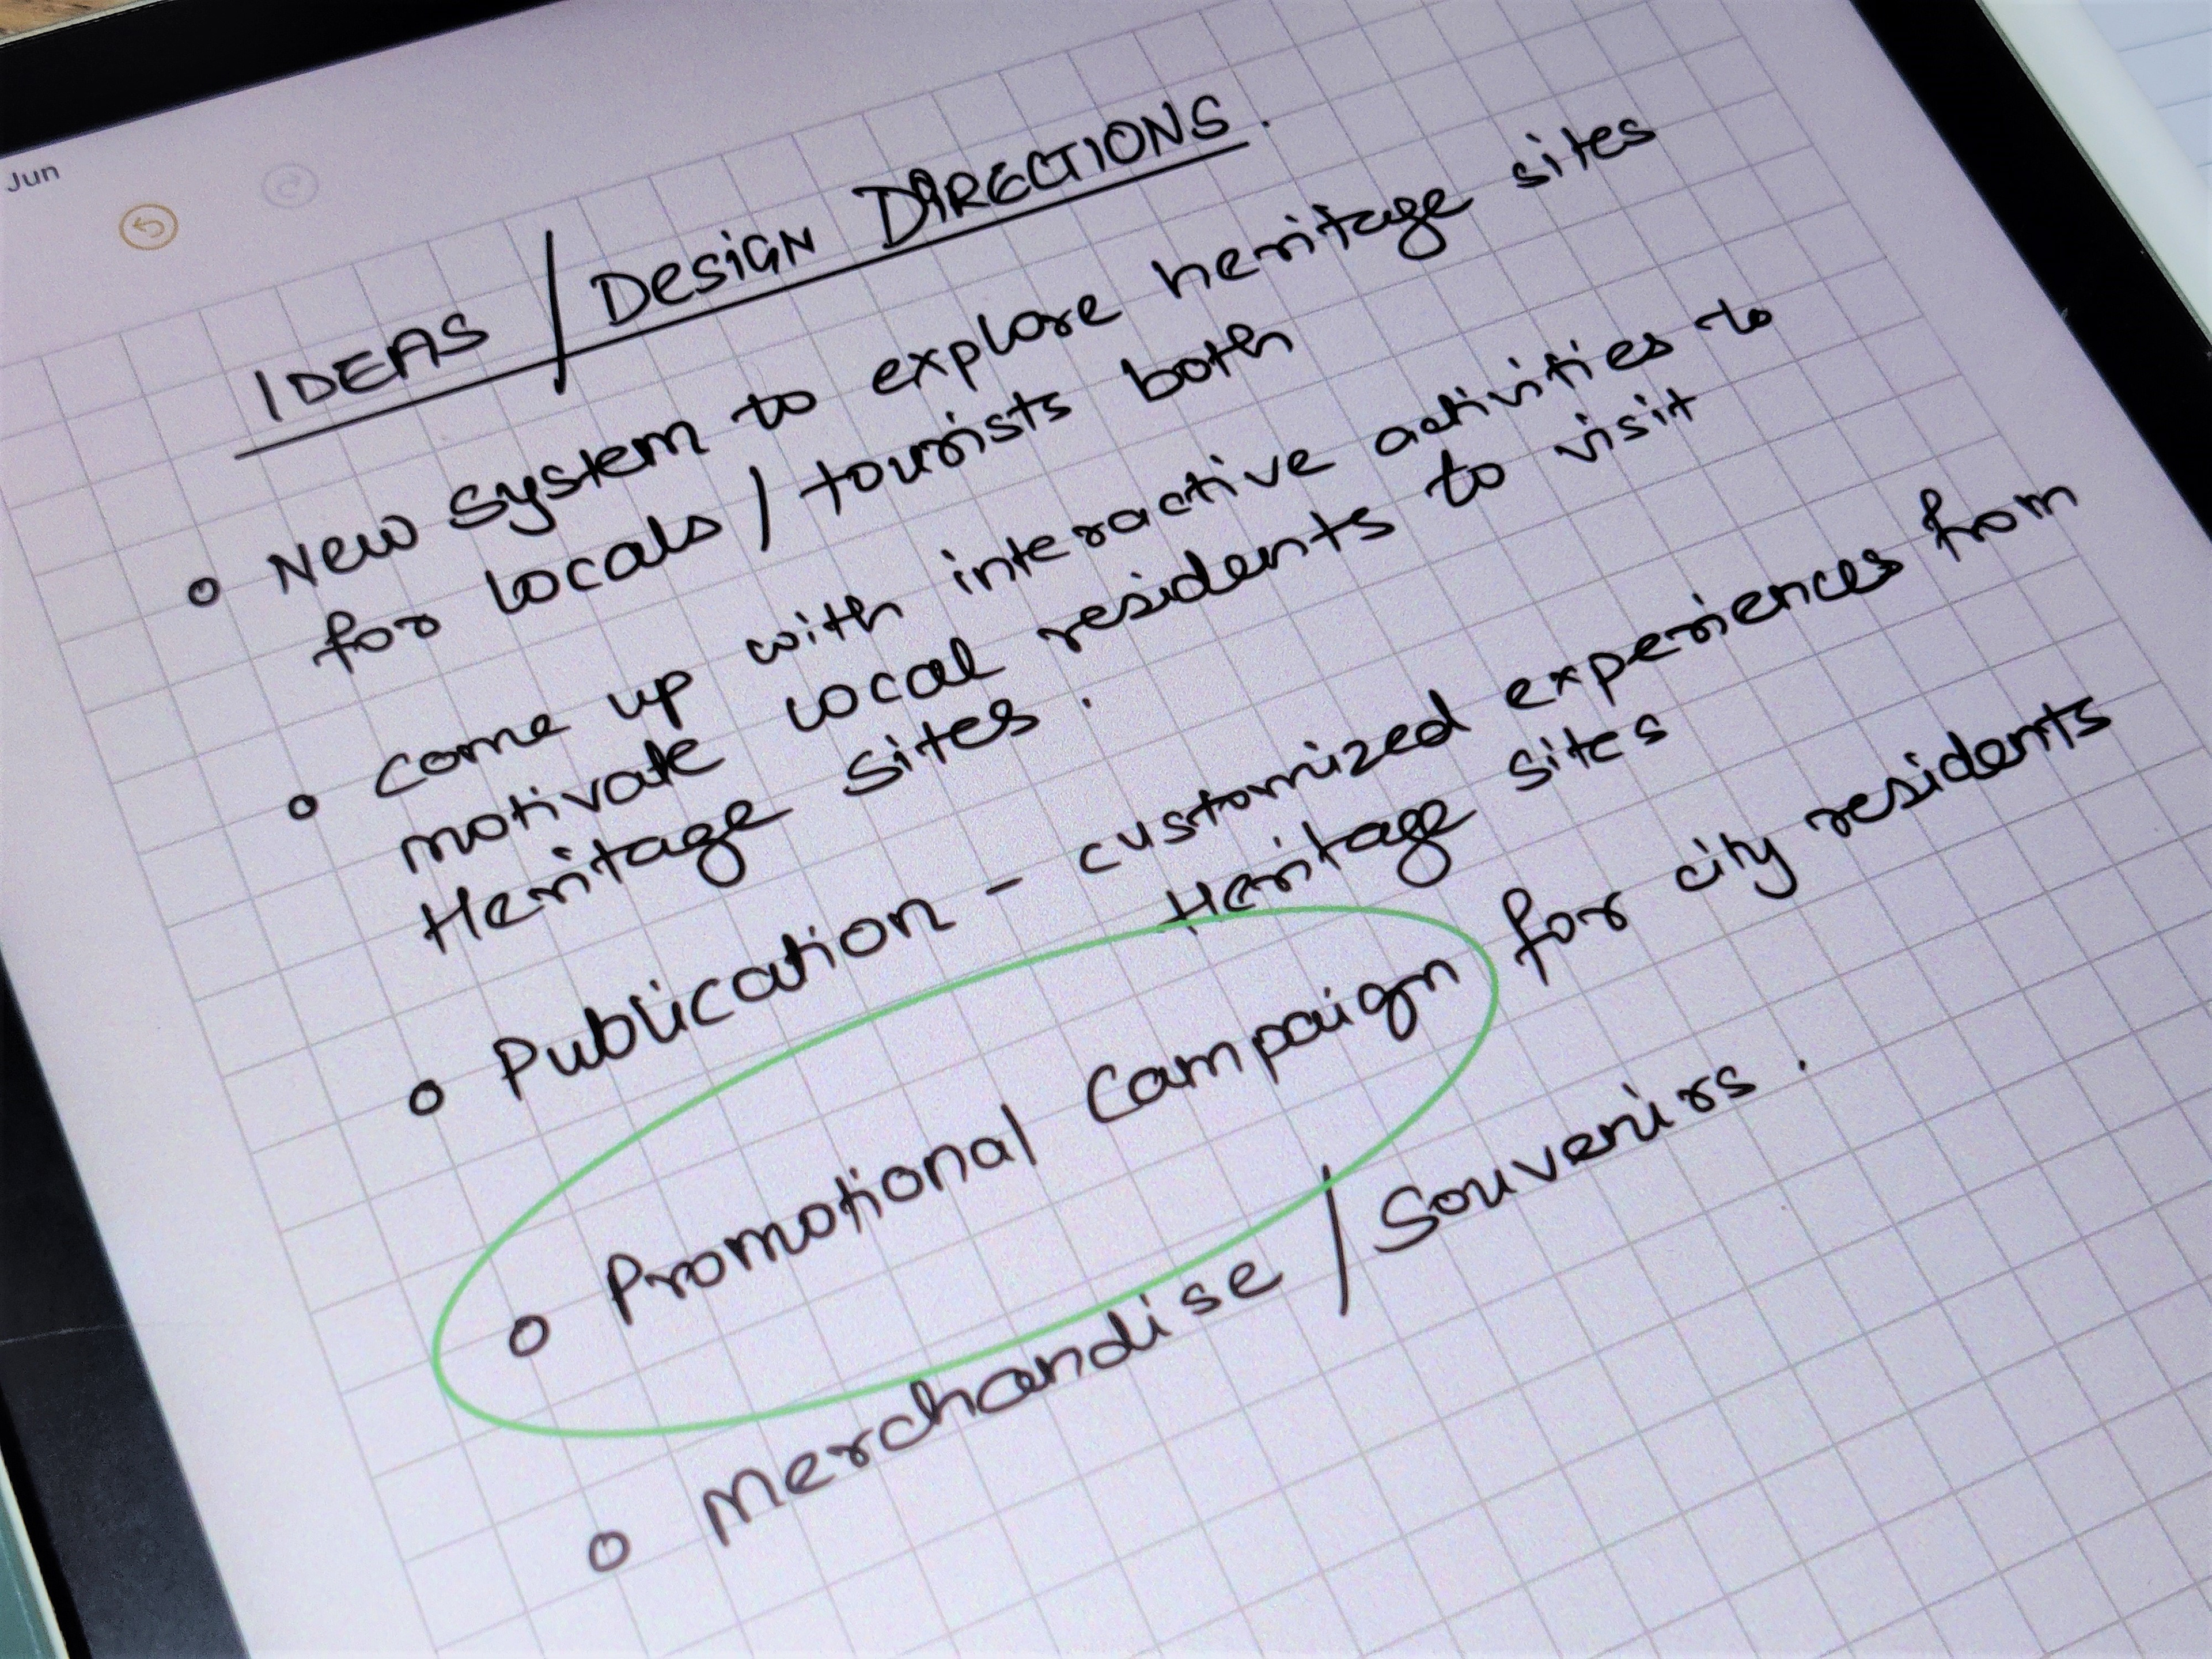 Jun
IDEAS / DESiGN DIRECTIONS.
o New system to explore heritage sites
for locals / tourists both
o come up with interactive activities to
motivate local residents to visit
Heritage sites.
o Publication - customized experiences from
Heritage sites
o Promotional Campaign for city residents
o Merchandise / Souvenirs.